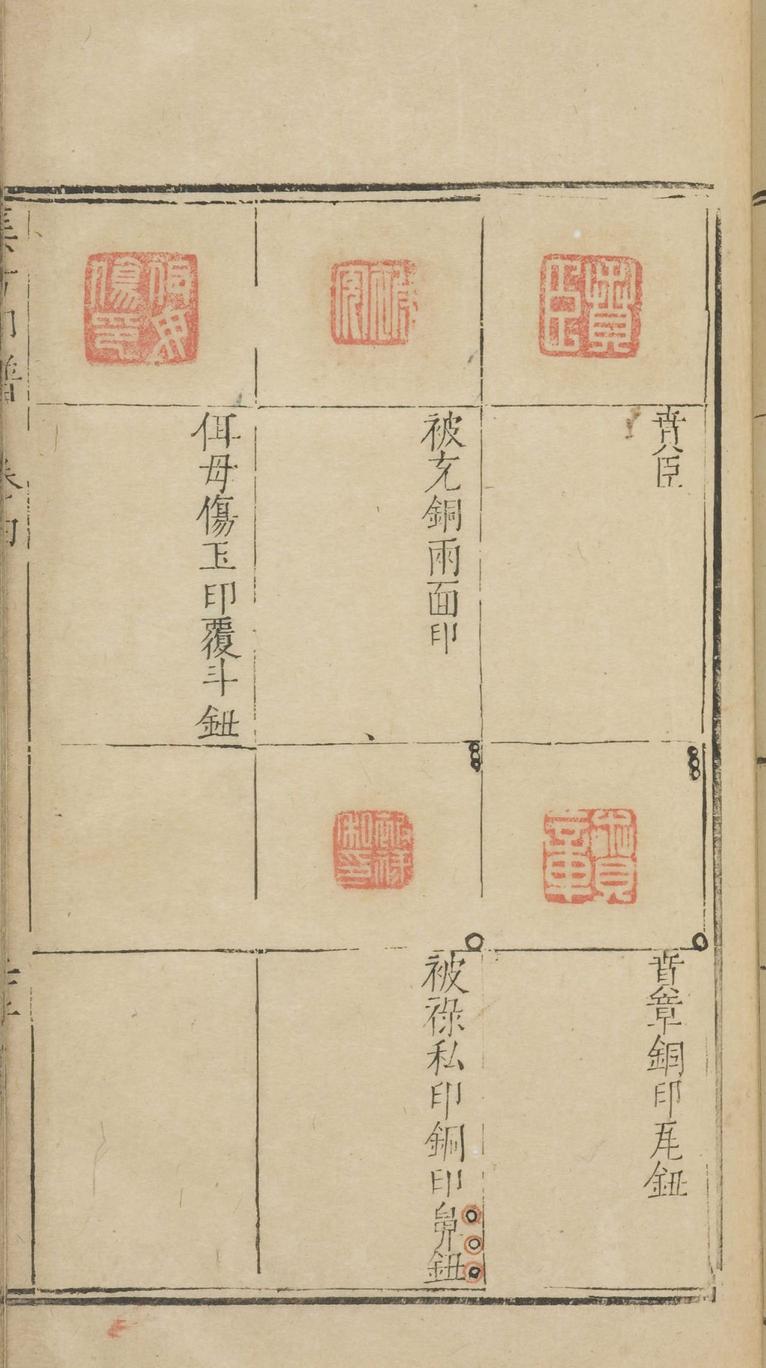 賁臣
賁章銅印瓦鈕
被充銅兩面印
被祿私印銅印鼻鈕
佴毋傷玉印覆斗鈕